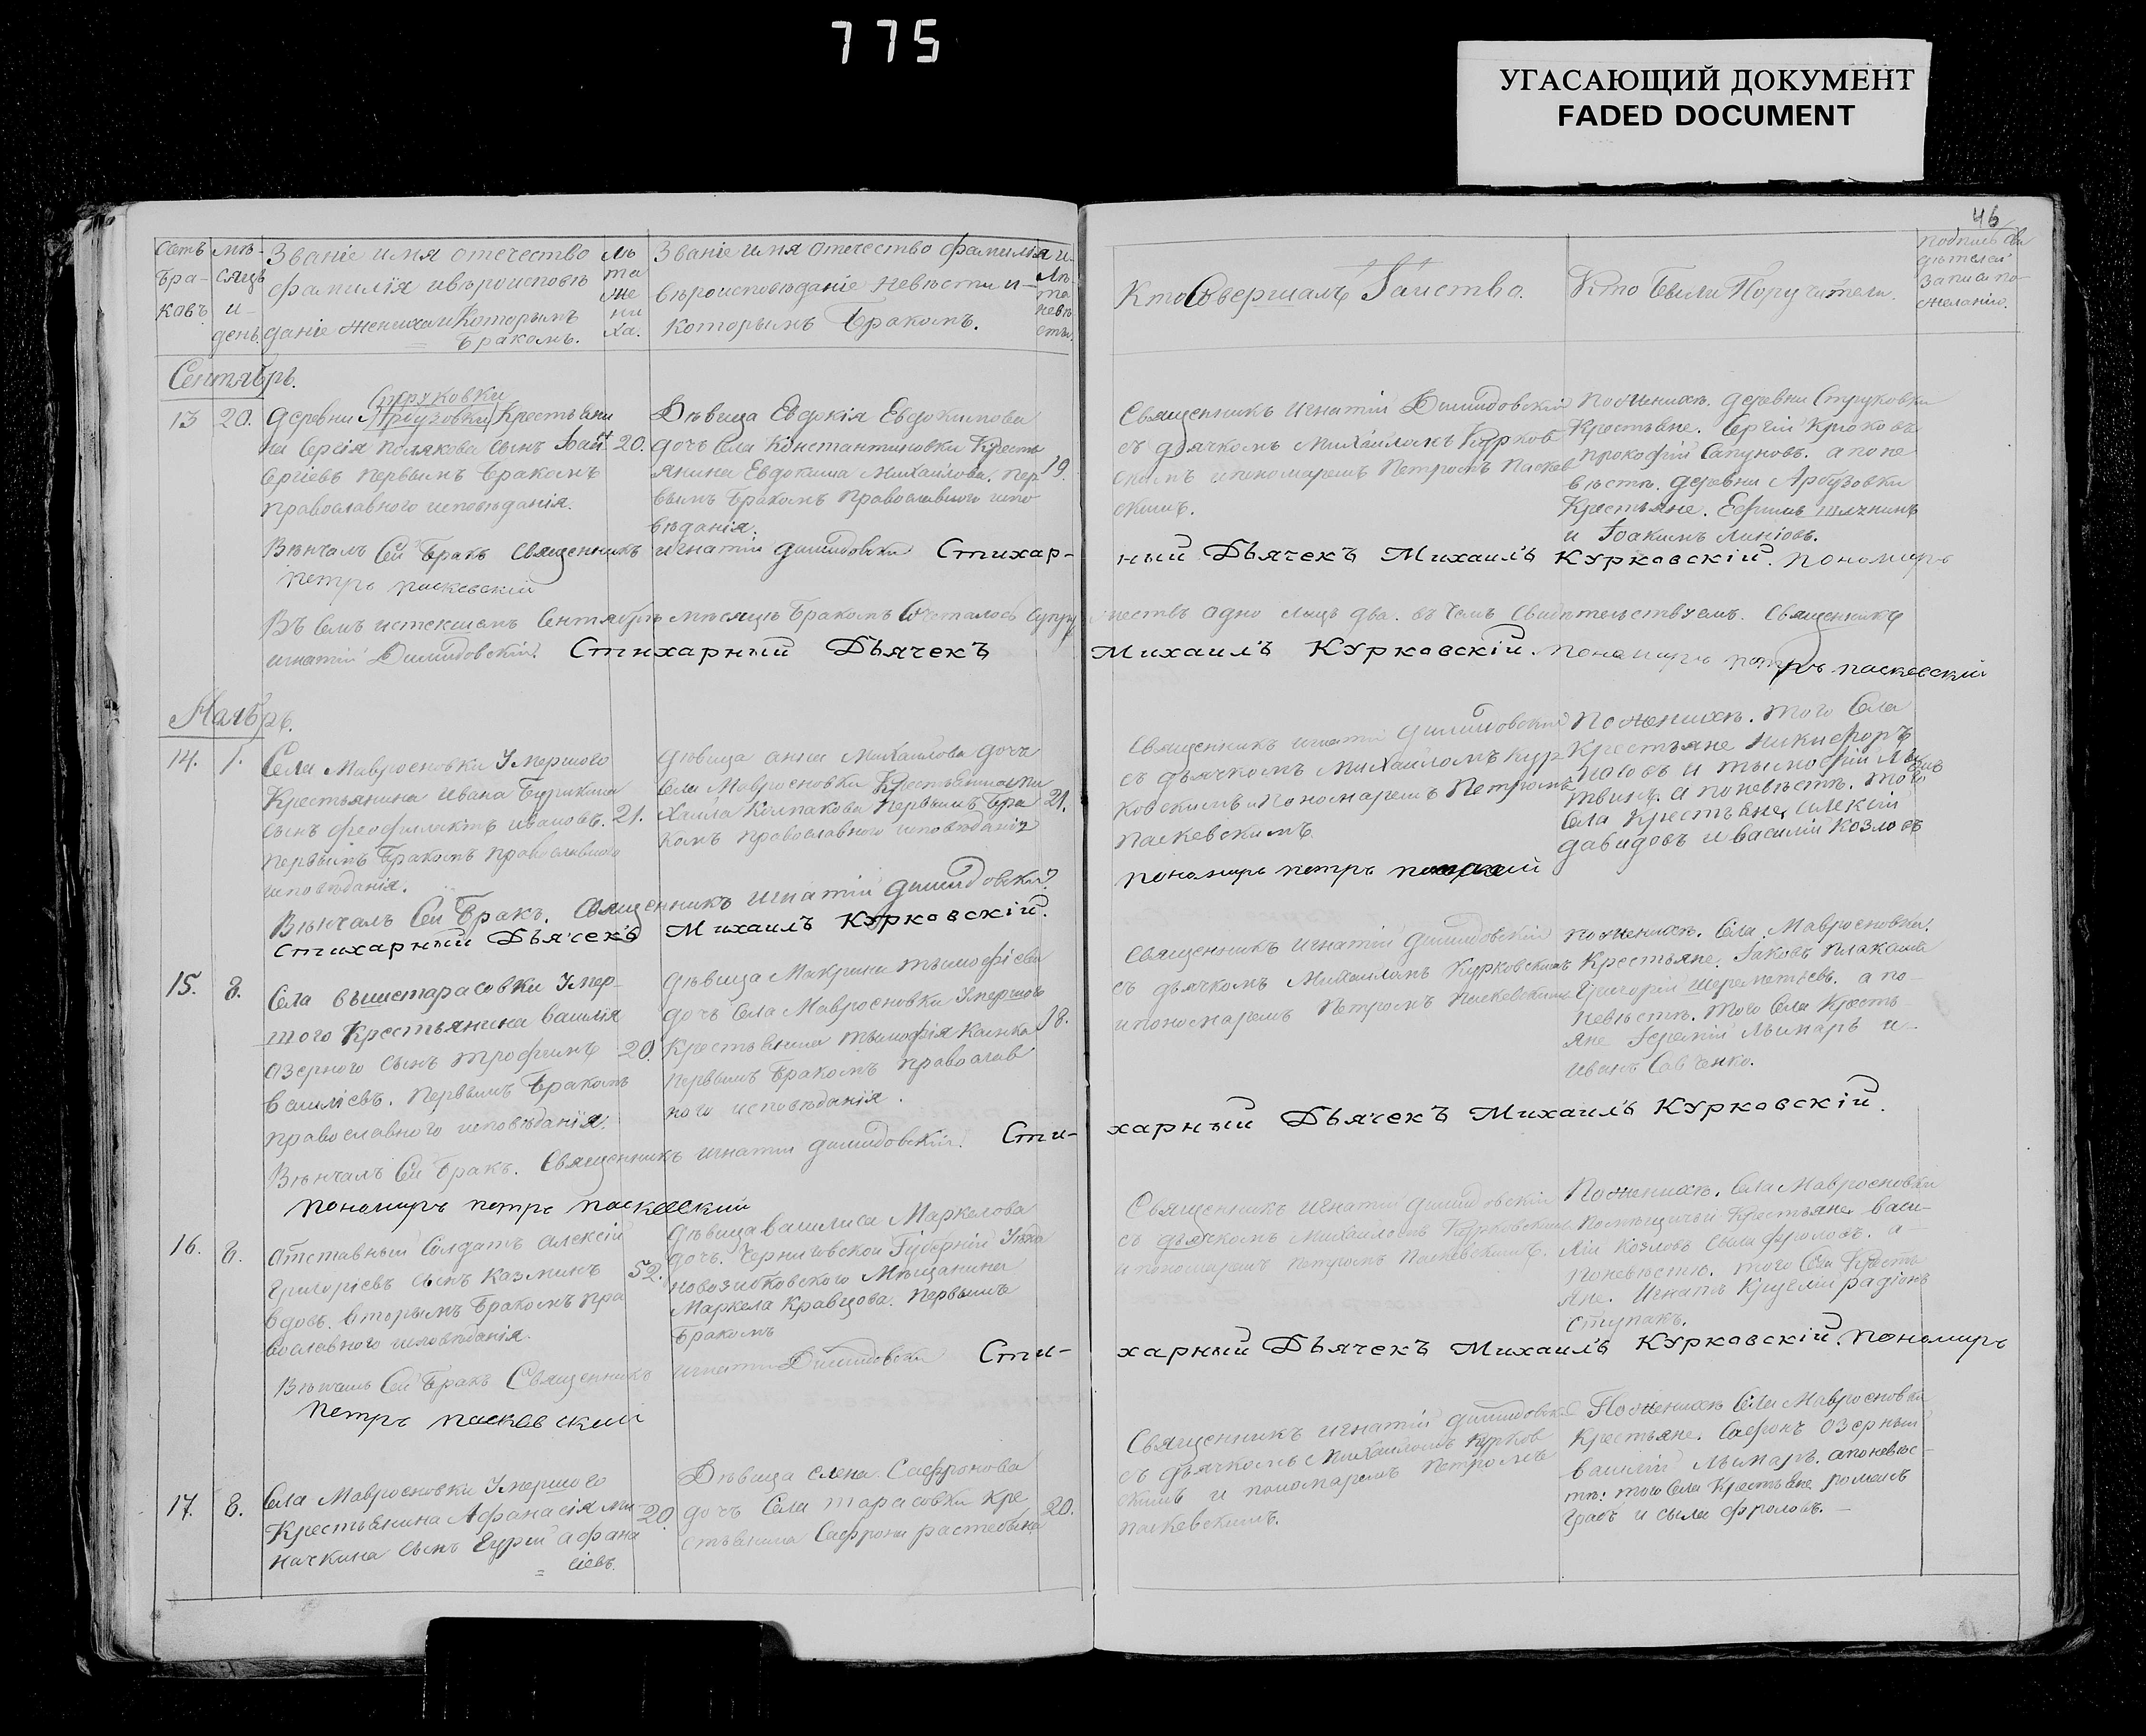 775
УГАСАЮЩИЙ ДОКУМЕНТ
FADED DOCUMENT
46
Счетъ Бра- ковъ.
мѣ- сяцъ и- день.
Званіе имя отечество
фамилія ивѣроисповѣ
даніе жениха и Которымъ
Бракомъ.
лѣ та же ни ха.
Званіе имя отечество фамилія и-
вѣроисповѣданіе невѣсты и-
которымъ Бракомъ.
лѣ- та невѣ сты.
Кто Совершалъ Таинство.
Кто были Поручители.
подпись сви дѣтелей записи по- желанію.
Сентябрь.
13
20.
Струковки
деревни Арбузовки Крестьяни
на Сергія Полякова Сынъ
Сргіевъ первымъ бракомъ
православнаго исповѣданія.
20.
Дѣвица Евдокія Евдокимова
дочь Села Константиновки Кресть
янина Евдокима Михайлова. пер
вымъ бракомъ православнаго испо
вѣданія.
19.
Священникъ Игнатій Димидовскій
съ дьячкомъ Михаиломъ Курков
скимъ ипономаремъ Петромъ Паскев
скимъ.
По женихѣ. деревни Струковки
Крестьяне. Сергій Крюковъ
прокофій Сапуновъ. а по не
вѣстѣ. деревни Арбузовки
Крестьяне. Ефимъ
и Іоакимъ
Вѣнчалъ Сей Бракъ Священникъ Игнатій Димидовскій Стихар-
ный Дьячекъ Михаилъ Курковскій. пономарь
петръ паскевскій
Въ семъ истекшемъ Сентябрѣ мѣсяцѣ Бракомъ Сочеталось Супру
жествъ одно лицъ два. въ чемъ Свидѣтельствуемъ. Священникъ
игнатій Димидовскій. Стихарный Дьячекъ
Михаилъ Курковскій. пономарь петръ паскевскій
Ноябрь.
14.
1.
Села Мавросновки Умершого
Крестьянина Ивана
Сынъ феофилактъ Ивановъ.
первымъ бракомъ православнаго
исповѣданія.
21.
дѣвица анна Михайлова дочь
Села Мавросновки Крестьянина Ми
хаила Колпакова первымъ бра
комъ православнаго исповѣданія
21.
Священникъ игнатій Димидовскій
съ дьячкомъ михаиломъ Кур
ковскимъ и пономаремъ Петромъ
паскевскимъ.
По женихѣ. того Села
Крестьяне Никифоръ
и тимофій
а поневѣстѣ. того
Села Крестьяне Алексій
давидовъ и василій козловъ
пономарь петръ
Вѣнчалъ Сей Бракъ. Священникъ игнатій Димидовскій
Стихарный Дьячекъ Михаилъ Курковскій.
15.
8.
Села вышетарасовки Умер-
шого Крестьянина василія
Озерного Сынъ трофимъ
василіевъ. первымъ бракомъ
православнаго исповѣданія.
20.
дѣвица Макрина тимофіева
дочь Села Мавросновки Умершого
Крестьянина тимофія
первымъ бракомъ православ
ного исповѣданія.
18.
Священникъ Игнатій Димидовскій
съ дьячкомъ Михаиломъ Курковскимъ
ипономаремъ Петромъ Паскевскимъ
по женихѣ. Села Мавросновки.
Крестьяне. Іаковъ
Григорій Шереметьевъ. а по-
невѣстѣ. того Села Кресть
яне и
иванъ Савченко.
Вѣнчалъ Сей Бракъ. Священникъ игнатій Димидовскій. Сти-
харный Дьячекъ Михаилъ Курковскій.
пономарь петръ паскевский
16.
8.
Отставный Солдатъ алексій
Григоріевъ Сынъ Казминъ
вдовъ. вторымъ бракомъ пра
вославного исповѣданія.
52.
дѣвица василиса Маркелова
дочь. Черниговской Губерніи Уѣзда
новозибковского Мѣщанина
Маркела Кравцова. первымъ
бракомъ
Священникъ Игнатій Димидовскій
съ дьячкомъ михаиломъ Курковскимъ
и пономаремъ Петромъ Паскевскимъ.
По женихѣ. Села Мавросновки
Помѣщичьи Крестьяне васи-
лій Козловъ Сыла Фроловъ. а
поневѣстѣ. того Села Кресть
яне. Игнатъ радіонъ
Ступакъ.
Вѣнчалъ Сей Бракъ Священникъ игнатій Димидовскій Сти-
харный Дьячекъ Михаилъ Курковскій. пономарь
петръ паскевский
17.
8.
Села Мавросновки Умершого
Крестьянина Афанасія Ми-
ничкина Сынъ Гурій афана
сіевъ.
20.
Дѣвица елена Сафронова
дочь Села тарасовки кре
стьянина Сафрона
20.
Священникъ игнатій Димидовскій
съ дьячкомъ михаиломъ Курков
скимъ и пономаремъ петромъ
паскевскимъ.
По женихѣ Села Мавросновки
Крестьяне. Сафронъ Озерный
василій Лымарь. апоневѣс-
тѣ: того Села Крестьяне романъ
Грабъ и сыла фроловъ.